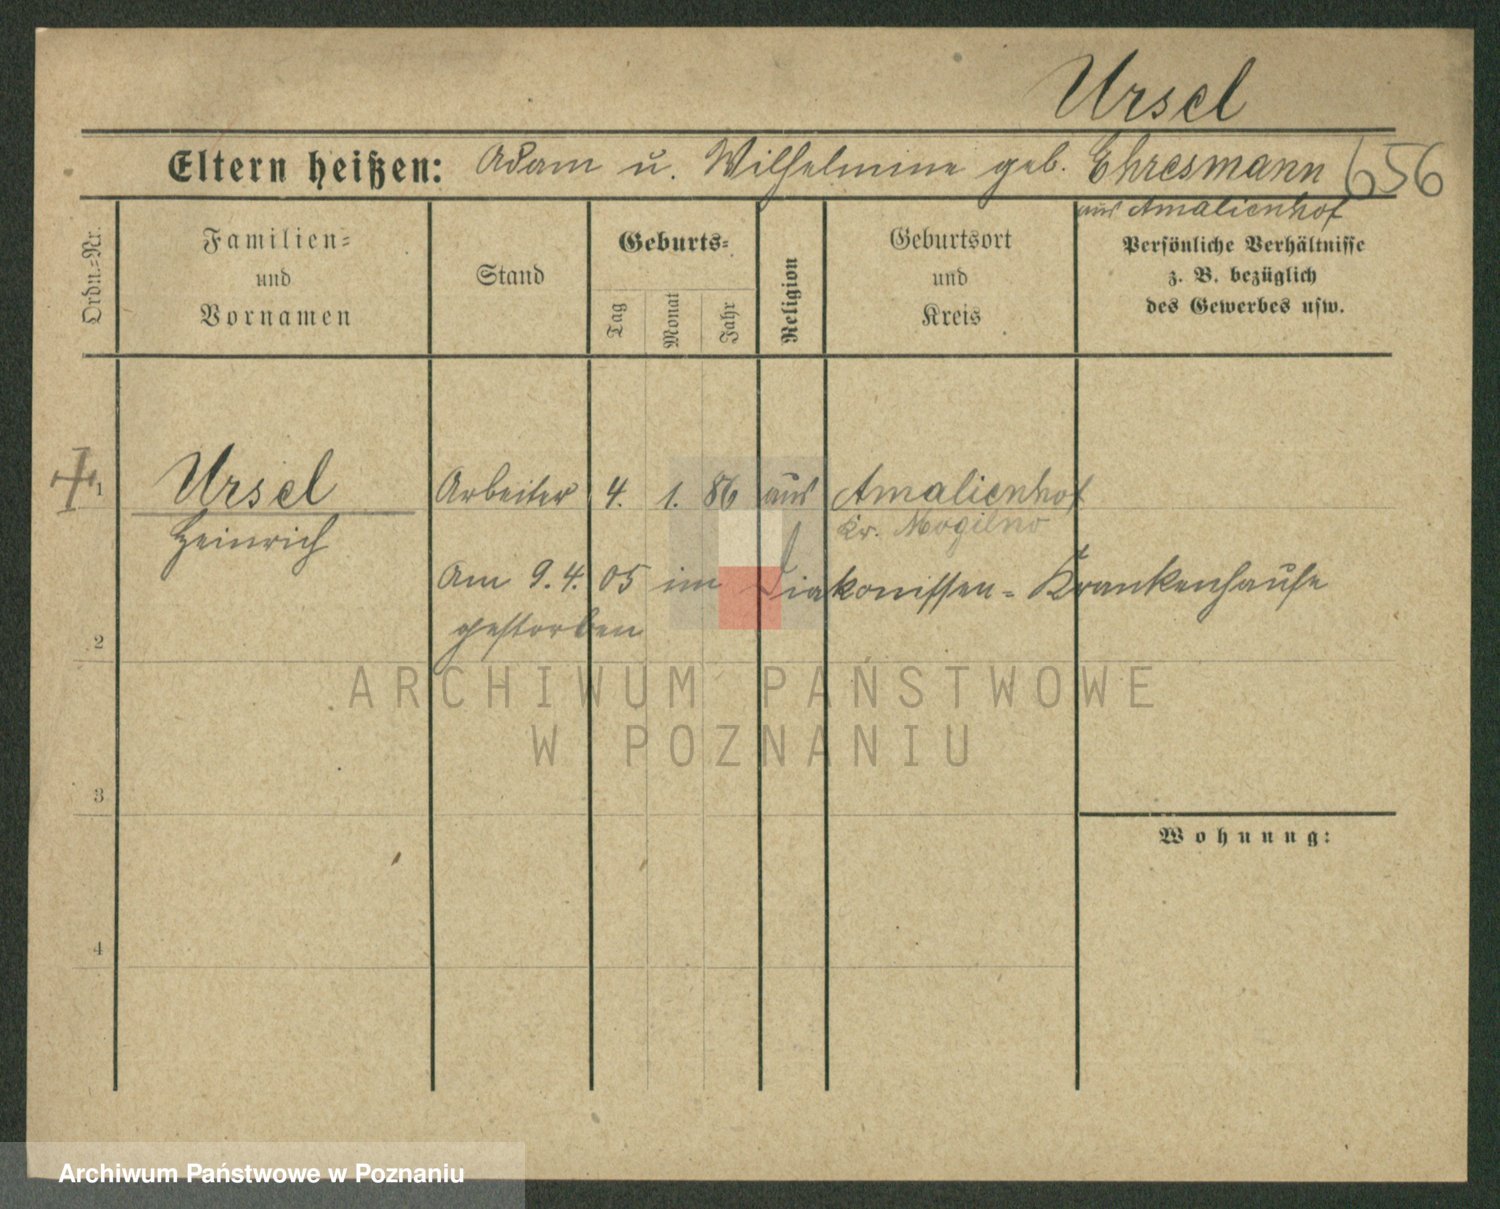 Ursel
Eltern heißen: Adam u. Wilhelmine geb. Ehresmann 656
aus Amalienhof
Ordn.-Nr.
Familien-
und
Vornamen
Stand
Geburts-
Tag
Monat
Jahr
Religion
Geburtsort
und
Kreis
Persönliche Verhältnisse
z. B. bezüglich
des Gewerbes usw.
1 Ursel Arbeiter 4. 1. 86 aus Amalienhof
Heinrich Kr. Mogilno
Am 9. 4. 05 im Diakonissen-Krankenhause
gestorben
2
ARCHIWUM PAŃSTWOWE
W POZNANIU
3
Wohnung:
4
Archiwum Państwowe w Poznaniu